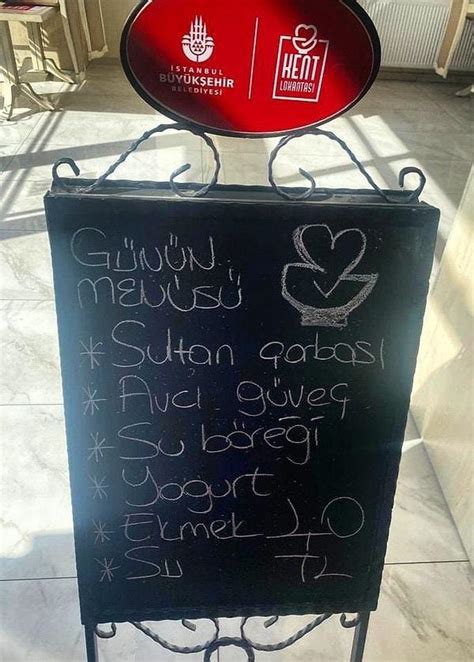 İSTANBUL
BÜYÜKŞEHİR
BELEDİYESİ
KENT
LOKANTASI
GÜNÜN
MENÜSÜ
* Sultan çorbası
* Avcı güveç
* Su böreği
* Yogurt
* Ekmek 40
* Su TL